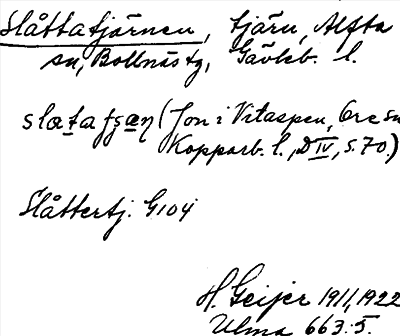 Slåttatjärnen, tjärn, Alfta
sn, Bollnäs tg, Gävleb. l.
slatafȷan (Jon i Vitaspen, Ore sn
Kopparb. l., D IV, s. 70.)
Slåttertj. G104
H. Geijer 1911, 1922
Ulma 663:5.